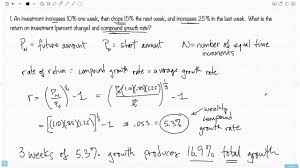 1. An investment increases 10% one week, then drops 15% the next week, and increases 25% in the last week. What is the
return on investment (percent change) and compound growth rate?
P_N = future amount P_0 = start amount N = number of equal time
increments
rate of return = compound growth rate = average growth rate
r = (P_N / P_0)^(1/N) - 1 = (P_0(1.10)(.85)(1.25) / P_0)^(1/3) - 1
= [(1.10)(.85)(1.25)]^(1/3) - 1 = .053 = 5.3% weekly compound growth rate
3 weeks of 5.3% growth produces 16.9% total growth